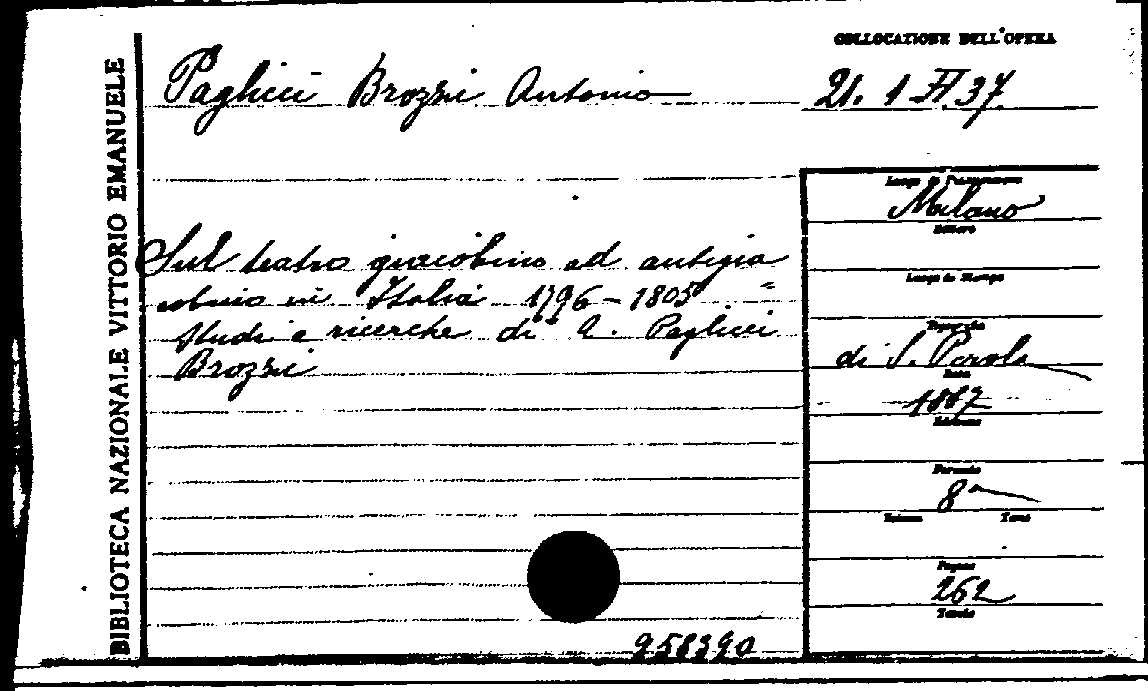 BIBLIOTECA NAZIONALE VITTORIO EMANUELE
COLLOCAZIONE DELL'OPERA
Paglicci Brozzi Antonio
21. 1 F 37
Sul teatro giacobino ed antigia
cobino in Italia 1796-1805 "
Studi e ricerche di A. Paglicci
Brozzi
Luogo di Pubblicazione
Milano
Editore
Luogo di Stampa
Tipografia
di S. Pirola
Data
1887
Edizione
Formato
8°
Volume Tomi
Pagine
262
Tavole
958390